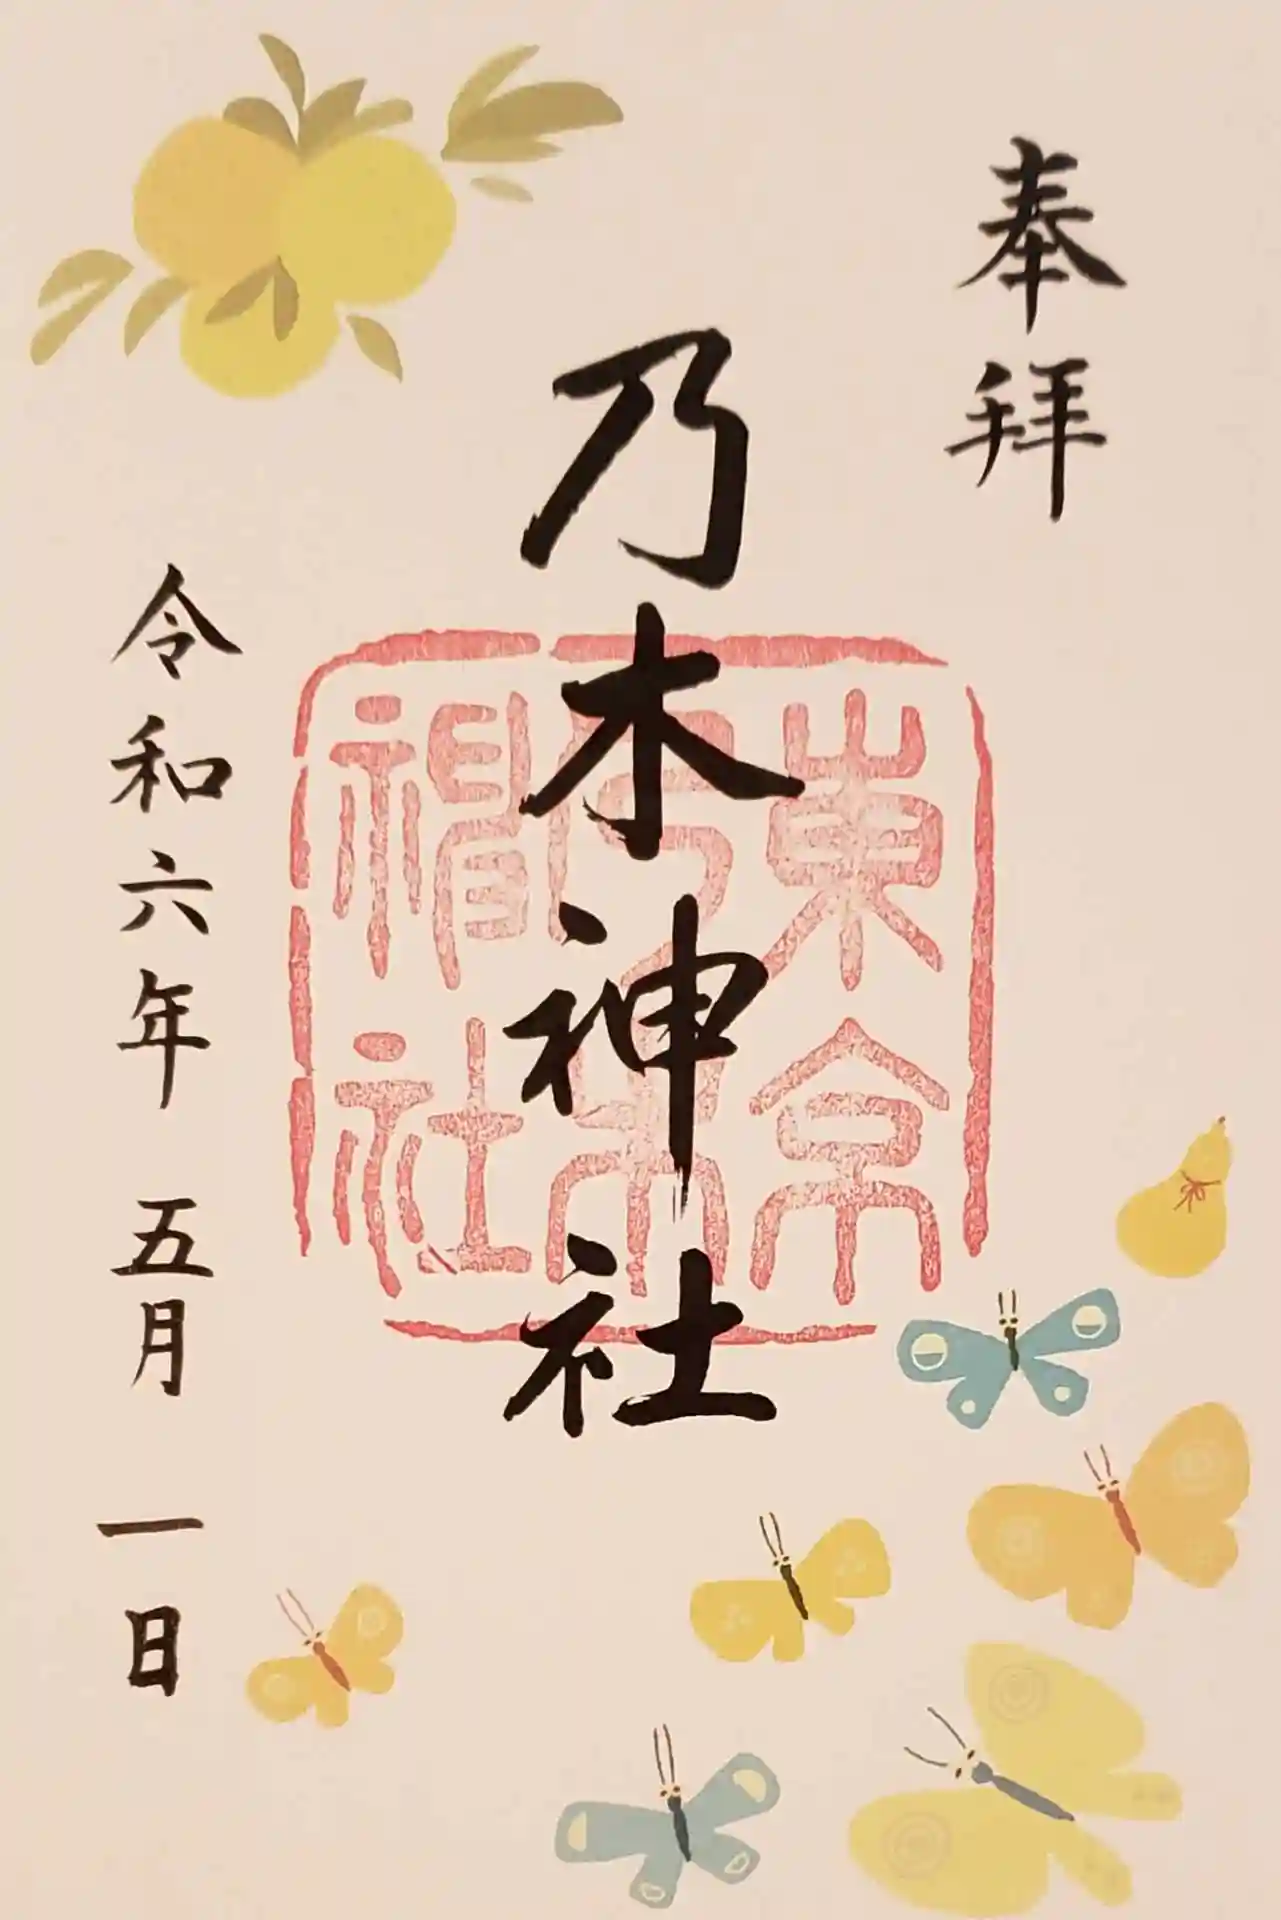 奉拝
乃木神社
東京
乃木
神社
令和六年 五月 一日